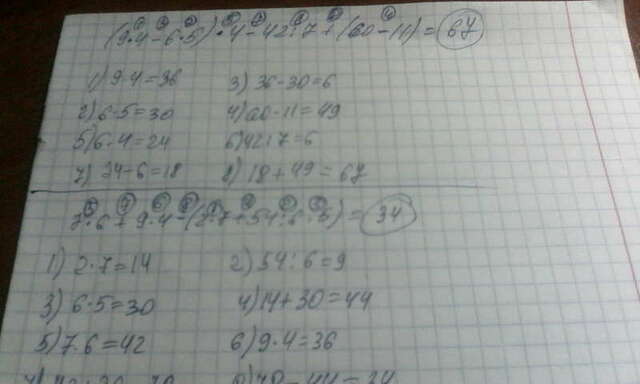 (9·4-6·5)·4-42:7+(60-11)=67
1) 9·4=36 3) 36-30=6
2) 6·5=30 4) 60-11=49
5) 6·4=24 6) 42:7=6
7) 24-6=18 8) 18+49=67
7·6+9·4-(2·7+54:6·5)=34
1) 2·7=14 2) 54:6=9
3) 6·5=30 4) 14+30=44
5) 7·6=42 6) 9·4=36